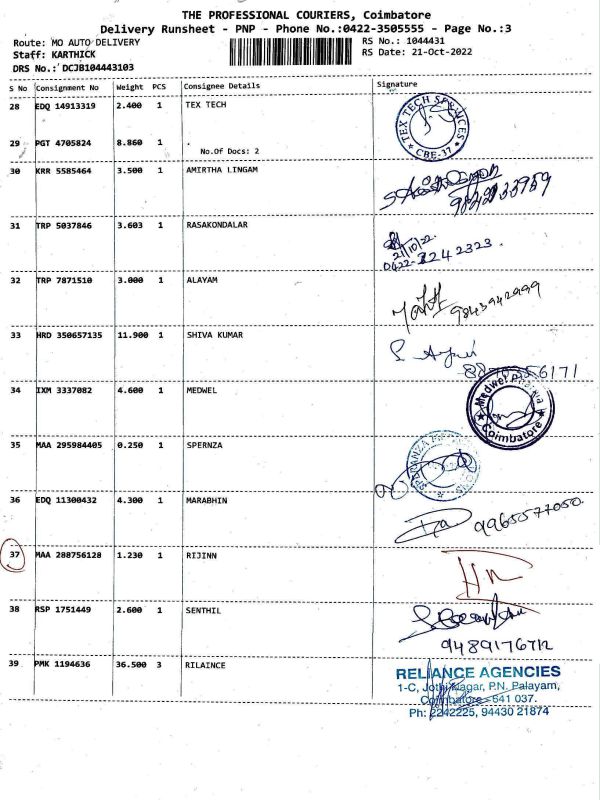 THE PROFESSIONAL COURIERS, Coimbatore
Delivery Runsheet - PNP - Phone No.:0422-3505555 - Page No.:3
Route: MO AUTO DELIVERY
RS No.: 1044431
Staff: KARTHICK
RS Date: 21-Oct-2022
DRS No.: DCJB104443103
S No Consignment No Weight PCS Consignee Details Signature
28 EDQ 14913319 2.400 1 TEX TECH
TEX TECH
CBE-37
29 PGT 4705824 8.860 1 .
No.Of Docs: 2
30 KRR 5585464 3.500 1 AMIRTHA LINGAM
31 TRP 5037846 3.603 1 RASAKONDALAR
21/10/22.
0422-2242323.
32 TRP 7871510 3.000 1 ALAYAM
9843942999
33 HRD 350657135 11.900 1 SHIVA KUMAR
34 IXM 3337082 4.600 1 MEDWEL
Medwel Pharma
Coimbatore
35 MAA 295984405 0.250 1 SPERNZA
SPERANZA
36 EDQ 11300432 4.300 1 MARABHIN
9965577050.
37 MAA 288756128 1.230 1 RIJINN
38 RSP 1751449 2.600 1 SENTHIL
39 PMK 1194636 36.500 3 RILAINCE
RELIANCE AGENCIES
1-C, Jothi Nagar, P.N. Palayam,
Coimbatore - 641 037.
Ph: 2242225, 94430 21874